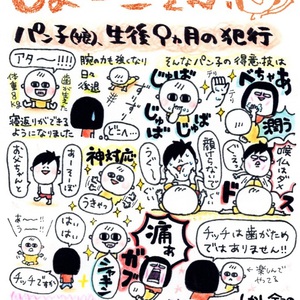 パン子(娘)、生後9ヵ月の犯行
アター!!!!
体重8kg
歯が生えた
寝返りができる
ようになりました
腕の力も強くなり
日々
後退
どーん…
そんなパン子の得意技は
じゅば
じゅば
じゅば
べちゃあ
潤う
お父ちゃんと
あーそーぼ
神対応
うきゃっ
うい〜
顔けらないで〜
ぐえっ
喉仏はダメ
ドス
あ〜!!
う〜!!
チッチですか
はい
はい
シャキン
ガブ
痛ぁ
チッチは歯がため
ではありません!!
楽しんで
やってる